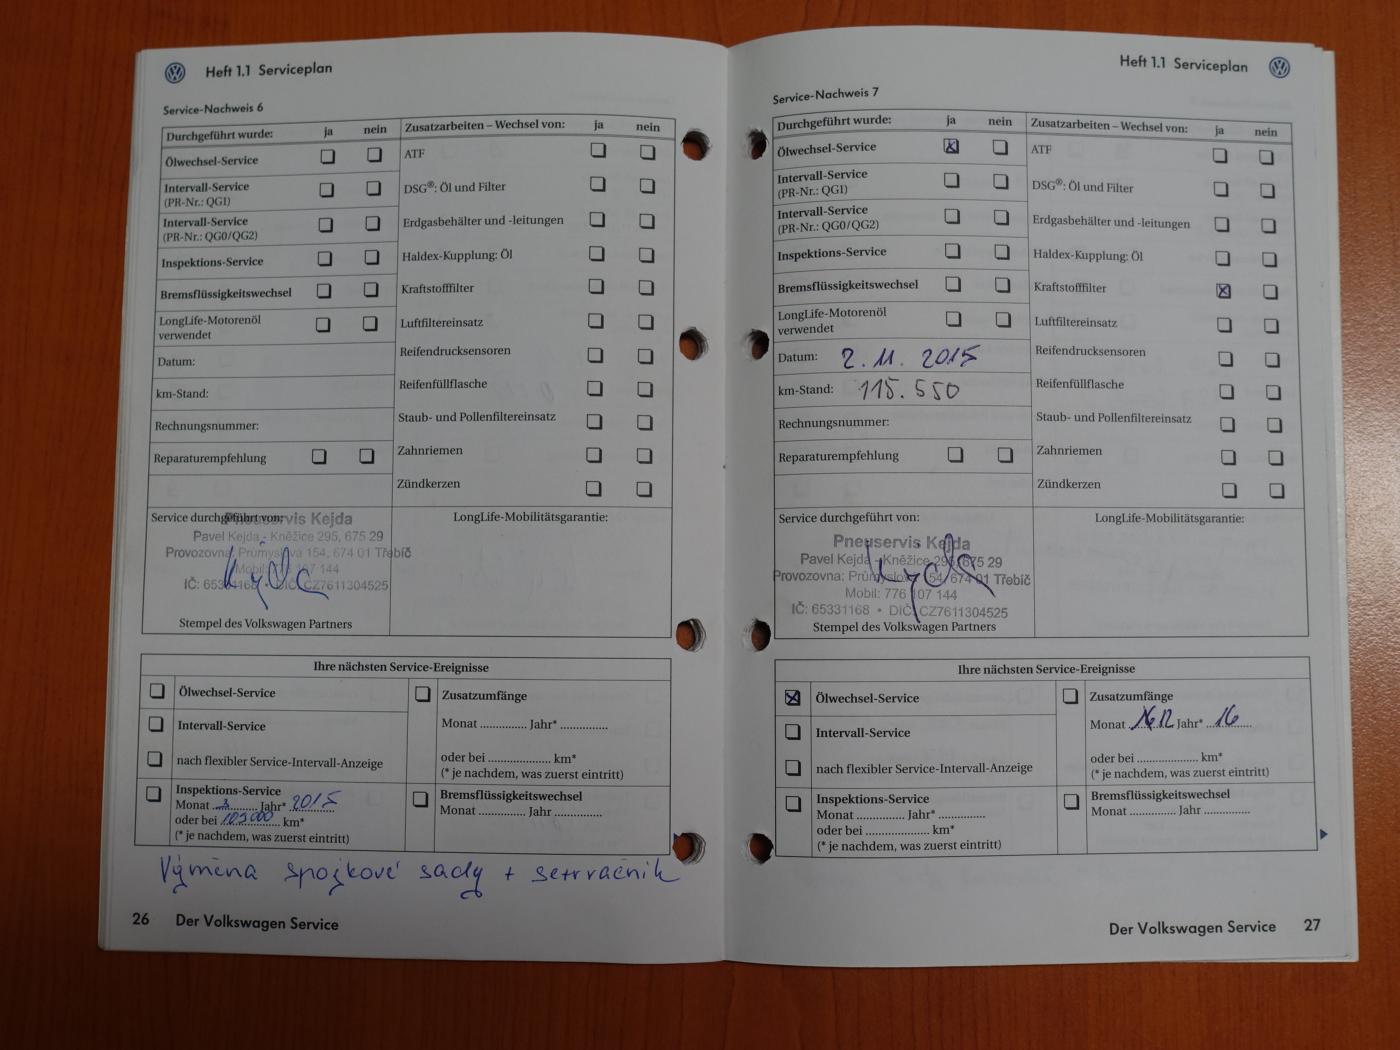 Heft 1.1 Serviceplan
Service-Nachweis 6
Durchgeführt wurde: ja nein
Ölwechsel-Service
Intervall-Service
(PR-Nr.: QG1)
Intervall-Service
(PR-Nr.: QG0/QG2)
Inspektions-Service
Bremsflüssigkeitswechsel
LongLife-Motorenöl
verwendet
Datum:
km-Stand:
Rechnungsnummer:
Reparaturempfehlung
Zusatzarbeiten – Wechsel von: ja nein
ATF
DSG®: Öl und Filter
Erdgasbehälter und -leitungen
Haldex-Kupplung: Öl
Kraftstofffilter
Luftfiltereinsatz
Reifendrucksensoren
Reifenfüllflasche
Staub- und Pollenfiltereinsatz
Zahnriemen
Zündkerzen
Service durchgeführt von:
Pneuservis Kejda
Pavel Kejda - Kněžice 295, 675 29
Provozovna: Průmyslová 154, 674 01 Třebíč
Mobil: 776 107 144
IČ: 65331168 • DIČ: CZ7611304525
Stempel des Volkswagen Partners
LongLife-Mobilitätsgarantie:
Ihre nächsten Service-Ereignisse
Ölwechsel-Service
Intervall-Service
nach flexibler Service-Intervall-Anzeige
Inspektions-Service
Monat 3 Jahr* 2015
oder bei 105000 km*
(* je nachdem, was zuerst eintritt)
Zusatzumfänge
Monat .............. Jahr* ..............
oder bei .................... km*
(* je nachdem, was zuerst eintritt)
Bremsflüssigkeitswechsel
Monat .............. Jahr ..............
Výměna spojkové sady + setrvačník
26 Der Volkswagen Service
Heft 1.1 Serviceplan
Service-Nachweis 7
Durchgeführt wurde: ja nein
Ölwechsel-Service
Intervall-Service
(PR-Nr.: QG1)
Intervall-Service
(PR-Nr.: QG0/QG2)
Inspektions-Service
Bremsflüssigkeitswechsel
LongLife-Motorenöl
verwendet
Datum: 2. 11. 2015
km-Stand: 115.550
Rechnungsnummer:
Reparaturempfehlung
Zusatzarbeiten – Wechsel von: ja nein
ATF
DSG®: Öl und Filter
Erdgasbehälter und -leitungen
Haldex-Kupplung: Öl
Kraftstofffilter
Luftfiltereinsatz
Reifendrucksensoren
Reifenfüllflasche
Staub- und Pollenfiltereinsatz
Zahnriemen
Zündkerzen
Service durchgeführt von:
Pneuservis Kejda
Pavel Kejda - Kněžice 295, 675 29
Provozovna: Průmyslová 154, 674 01 Třebíč
Mobil: 776 107 144
IČ: 65331168 • DIČ: CZ7611304525
Stempel des Volkswagen Partners
LongLife-Mobilitätsgarantie:
Ihre nächsten Service-Ereignisse
Ölwechsel-Service
Intervall-Service
nach flexibler Service-Intervall-Anzeige
Inspektions-Service
Monat .............. Jahr* ..............
oder bei .................... km*
(* je nachdem, was zuerst eintritt)
Zusatzumfänge
Monat 12 Jahr* 16
oder bei .................... km*
(* je nachdem, was zuerst eintritt)
Bremsflüssigkeitswechsel
Monat .............. Jahr ..............
Der Volkswagen Service 27